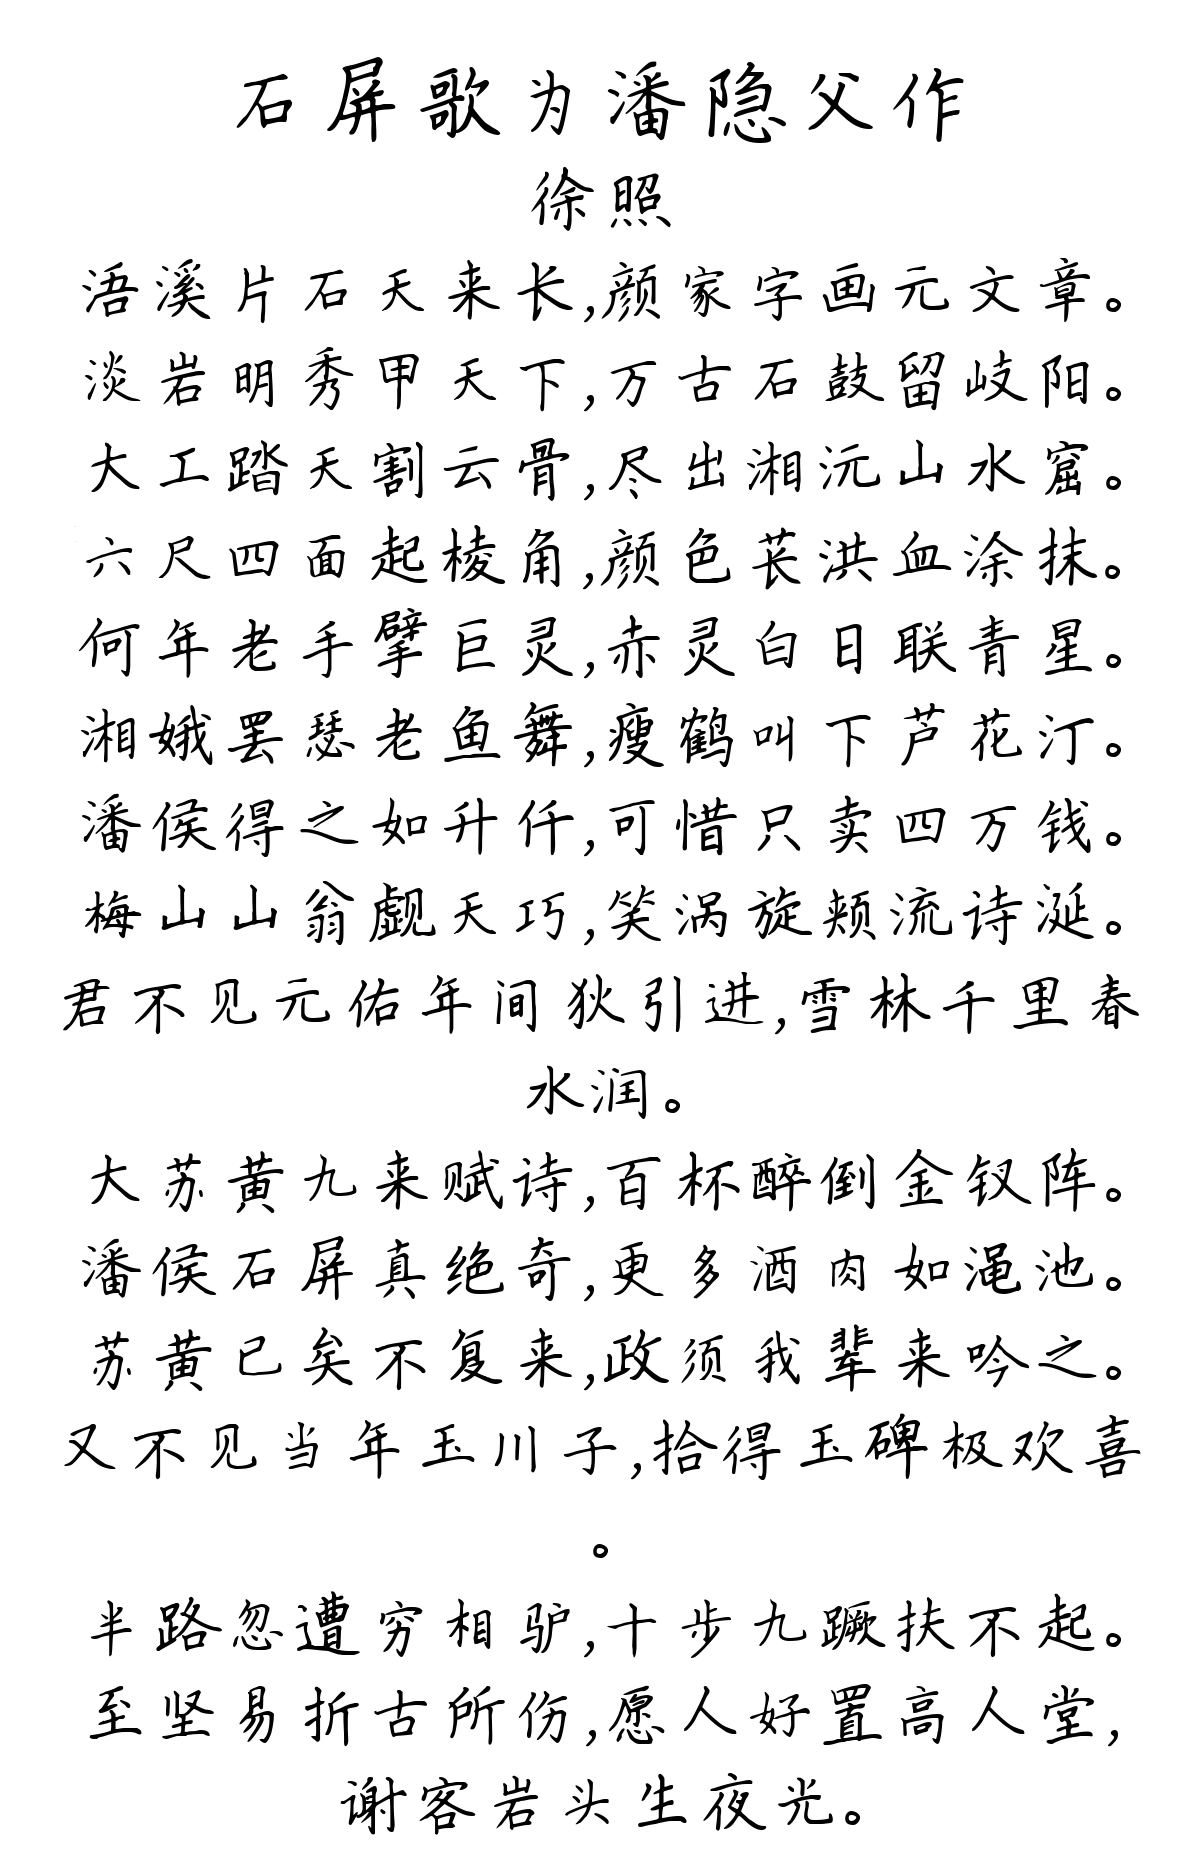 石屏歌为潘隐父作
徐照
浯溪片石天来长,颜家字画元文章。
淡岩明秀甲天下,万古石鼓留岐阳。
大工踏天割云骨,尽出湘沅山水窟。
六尺四面起棱角,颜色苌洪血涂抹。
何年老手擘巨灵,赤灵白日联青星。
湘娥罢瑟老鱼舞,瘦鹤叫下芦花汀。
潘侯得之如升仟,可惜只卖四万钱。
梅山山翁觑天巧,笑涡旋颊流诗涎。
君不见元佑年间狄引进,雪林千里春
水润。
大苏黄九来赋诗,百杯醉倒金钗阵。
潘侯石屏真绝奇,更多酒肉如渑池。
苏黄已矣不复来,政须我辈来吟之。
又不见当年玉川子,拾得玉碑极欢喜
。
半路忽遭穷相驴,十步九蹶扶不起。
至坚易折古所伤,愿人好置高人堂,
谢客岩头生夜光。